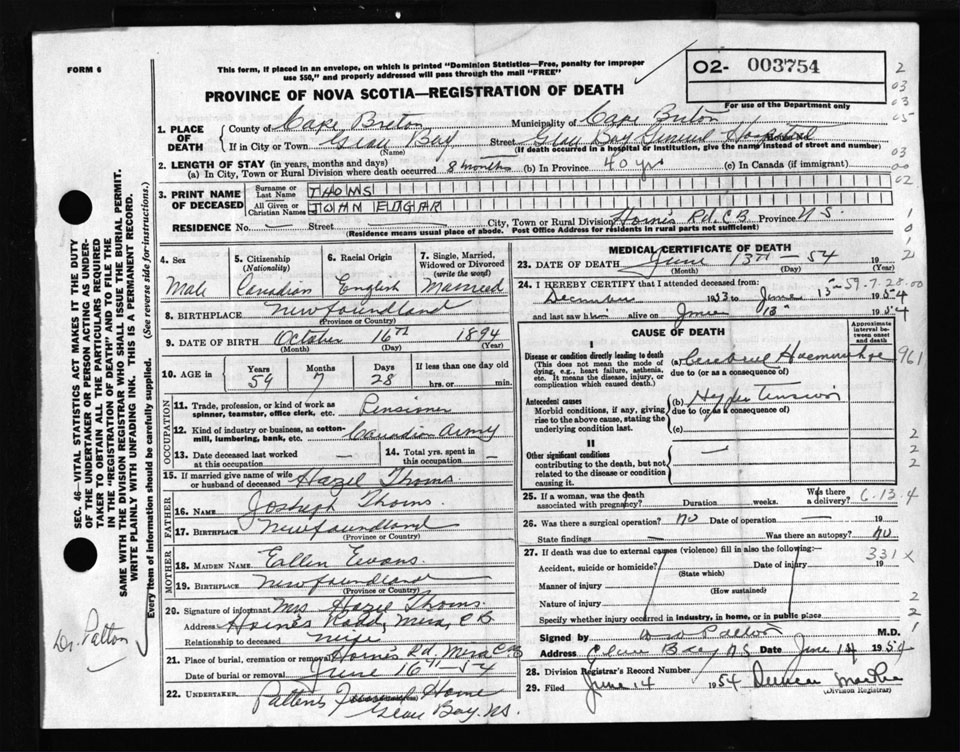 FORM 6
This form, if placed in an envelope, on which is printed "Dominion Statistics—Free, penalty for improper
use $50," and properly addressed will pass through the mail "FREE"
PROVINCE OF NOVA SCOTIA—REGISTRATION OF DEATH
02- 003754
For use of the Department only
1. PLACE OF DEATH
County of Cape Breton Municipality of Cape Breton
If in City or Town Glace Bay Street Glace Bay General Hospital
(Name) (If death occurred in a hospital or institution, give the name instead of street and number)
2. LENGTH OF STAY (in years, months and days)
(a) In City, Town or Rural Division where death occurred 8 months (b) In Province 40 yrs (c) In Canada (if immigrant)
3. PRINT NAME OF DECEASED
Surname or Last Name THOMS
All Given or Christian Names JOHN EDGAR
RESIDENCE No. — Street — City, Town or Rural Division Hornes Rd, C.B Province N.S.
(Residence means usual place of abode. Post Office Address for residents in rural parts not sufficient)
4. Sex
Male
5. Citizenship (Nationality)
Canadian
6. Racial Origin
English
7. Single, Married, Widowed or Divorced (write the word)
Married
8. BIRTHPLACE Newfoundland
(Province or Country)
9. DATE OF BIRTH October 16TH 1894
(Month) (Day) (Year)
10. AGE in Years 59 Months 7 Days 28 If less than one day old
hrs. or min.
OCCUPATION
11. Trade, profession, or kind of work as spinner, teamster, office clerk, etc. Pensioner
12. Kind of industry or business, as cotton-mill, lumbering, bank, etc. Canadian Army
13. Date deceased last worked at this occupation —
14. Total yrs. spent in this occupation —
15. If married give name of wife or husband of deceased Hazel Thoms
FATHER
16. Name Joseph Thoms
17. Birthplace Newfoundland
(Province or Country)
MOTHER
18. Maiden Name Ellen Evans.
19. Birthplace Newfoundland
(Province or Country)
20. Signature of informant Mrs Hazel Thoms.
Address Hornes Road, Mira, C B
Relationship to deceased Wife
21. Place of burial, cremation or removal Hornes Rd. Mira C.B
Date of burial or removal June 16TH — 54
22. Undertaker Pattens Funeral Home
Glace Bay. NS.
MEDICAL CERTIFICATE OF DEATH
23. DATE OF DEATH June 13TH — 54 19
(Month) (Day) (Year)
24. I HEREBY CERTIFY that I attended deceased from:
December 1953 to June 13 1954
59-7-28-00
and last saw him alive on June 13 1954
CAUSE OF DEATH
Approximate interval between onset and death
I
Disease or condition directly leading to death
(This does not mean the mode of dying, e.g., heart failure, asthenia, etc. It means the disease, injury, or complication which caused death.)
(a) Cerebral Haemorrhage
due to (or as a consequence of)
961
Antecedent causes
Morbid conditions, if any, giving rise to the above cause, stating the underlying condition last.
(b) Hypertension
due to (or as a consequence of)
(c)
II
Other significant conditions
contributing to the death, but not related to the disease or condition causing it.
—
25. If a woman, was the death associated with pregnancy? Duration weeks. Was there a delivery?
6-13.4
26. Was there a surgical operation? NO Date of operation — 19
State findings — Was there an autopsy? NO
27. If death was due to external causes (violence) fill in also the following:—
331 X
Accident, suicide or homicide? Date of injury 19
(State which)
Manner of injury
(How sustained)
Nature of injury
Specify whether injury occurred in industry, in home, or in public place
Signed by M.D.
Address Glace Bay N.S Date June 14 1954
28. Division Registrar's Record Number
29. Filed June 14 1954 Duncan
(Division Registrar)
SEC. 46—VITAL STATISTICS ACT MAKES IT THE DUTY
OF THE UNDERTAKER OR PERSON ACTING AS UNDER-
TAKER TO OBTAIN ALL THE PARTICULARS REQUIRED
IN THE "REGISTRATION OF DEATH" AND TO FILE THE
SAME WITH THE DIVISION REGISTRAR WHO SHALL ISSUE THE BURIAL PERMIT.
WRITE PLAINLY WITH UNFADING INK. THIS IS A PERMANENT RECORD.
Every item of information should be carefully supplied. (See reverse side for instructions.)
Dr. Patton
2
03
03
05
03
00
02
1
0
1
2
2
2
2
2
2
1